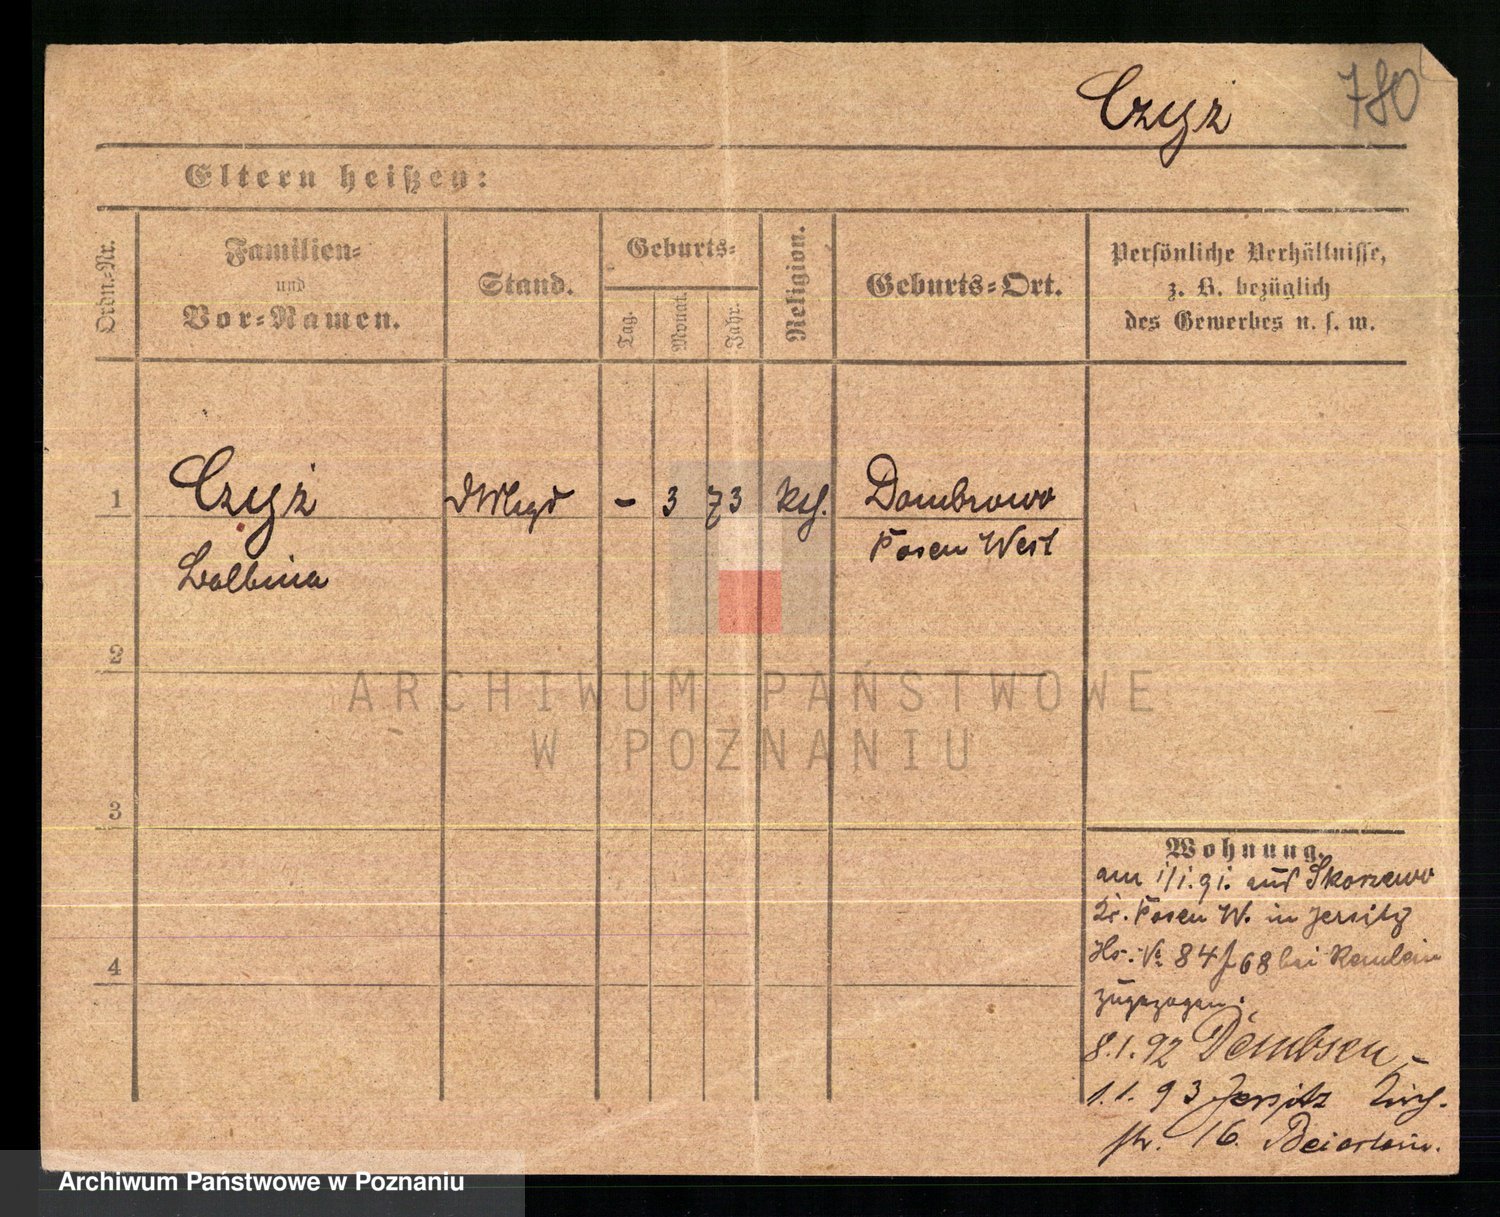 Czyż 780
Eltern heißen:
Ordn.-Nr.
Familien-
und
Vor-Namen.
Stand.
Geburts-
Tag.
Monat.
Jahr.
Religion.
Geburts-Ort.
Persönliche Verhältnisse,
z. B. bezüglich
des Gewerbes u. s. w.
1 Czyż - 3 73 kth. Dombrowo
Balbina Posen West
2
3
4
ARCHIWUM PAŃSTWOWE
W POZNANIU
Wohnung.
am 1/1.91. aus Skorzewo
Kr. Posen W. in Jersitz
Hs. № 84/68 bei
zugezogen.
8.1.92 Dembsen
1.1.93 Jersitz Kirch-
str. 16.
Archiwum Państwowe w Poznaniu